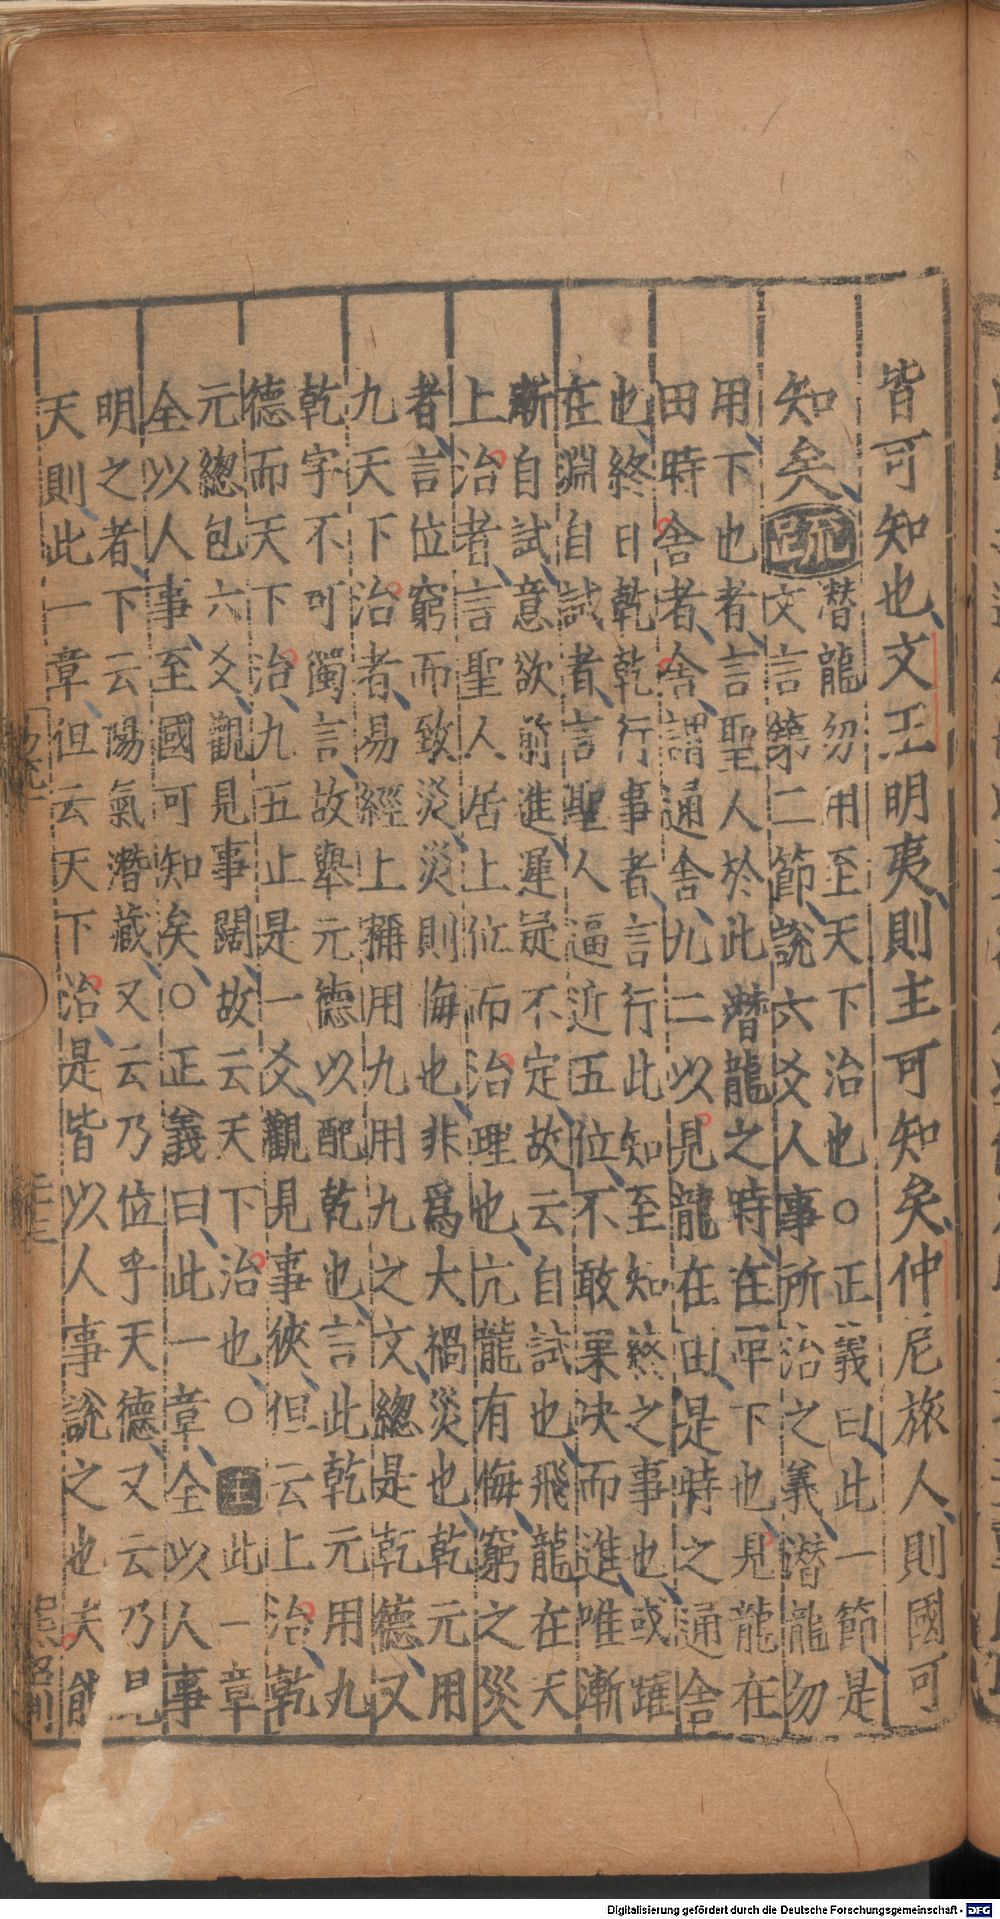 皆可知也文王明夷則主可知矣仲尼旅人則國可
知矣疏
潛龍勿用至天下治也○正義曰此一節是
文言第二節說六爻人事所治之義潛龍勿
用下也者言聖人於此潛龍之時在卑下也見龍在
田時舍者舍謂通舍九二以見龍在田是時之通舍
也終日乾乾行事者言行此知至知終之事也或躍
在淵自試者言聖人逼近五位不敢果决而進唯漸
漸自試意欲前進遲疑不定故云自試也飛龍在天
上治者言聖人居上位而治理也亢龍有悔窮之災
者言位窮而致災災則悔也非爲大禍災也乾元用
九天下治者易經上稱用九用九之文緫是乾德又
乾字不可獨言故舉元德以配乾也言此乾元用九
德而天下治九五止是一爻觀見事狹但云上治乾
元緫包六爻觀見事闊故云天下治也○注此一章
全以人事至國可知矣○正義曰此一章全以人事
明之者下云陽氣潛藏又云乃位乎天德又云乃見
天則此一章但云天下治是皆以人事說之也夫能
易疏一
二十三
Digitalisierung gefördert durch die Deutsche Forschungsgemeinschaft - DFG